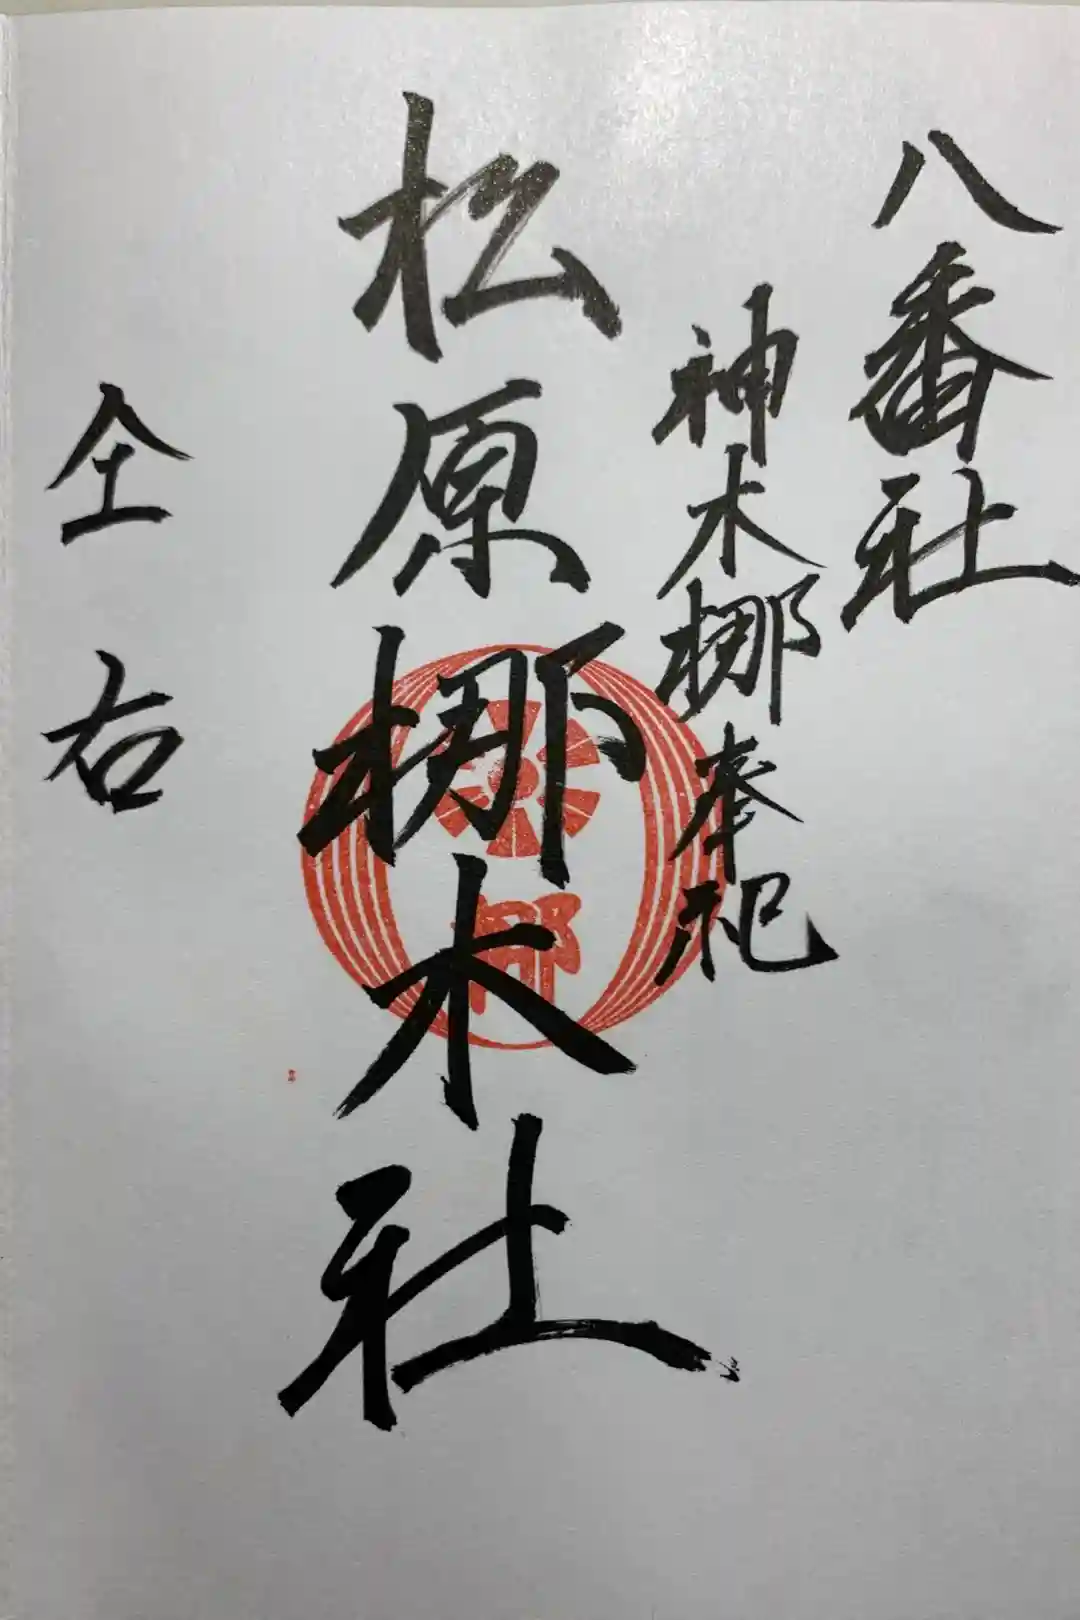 八番社
神木梛奉祀
松原梛木社
仝右
梛